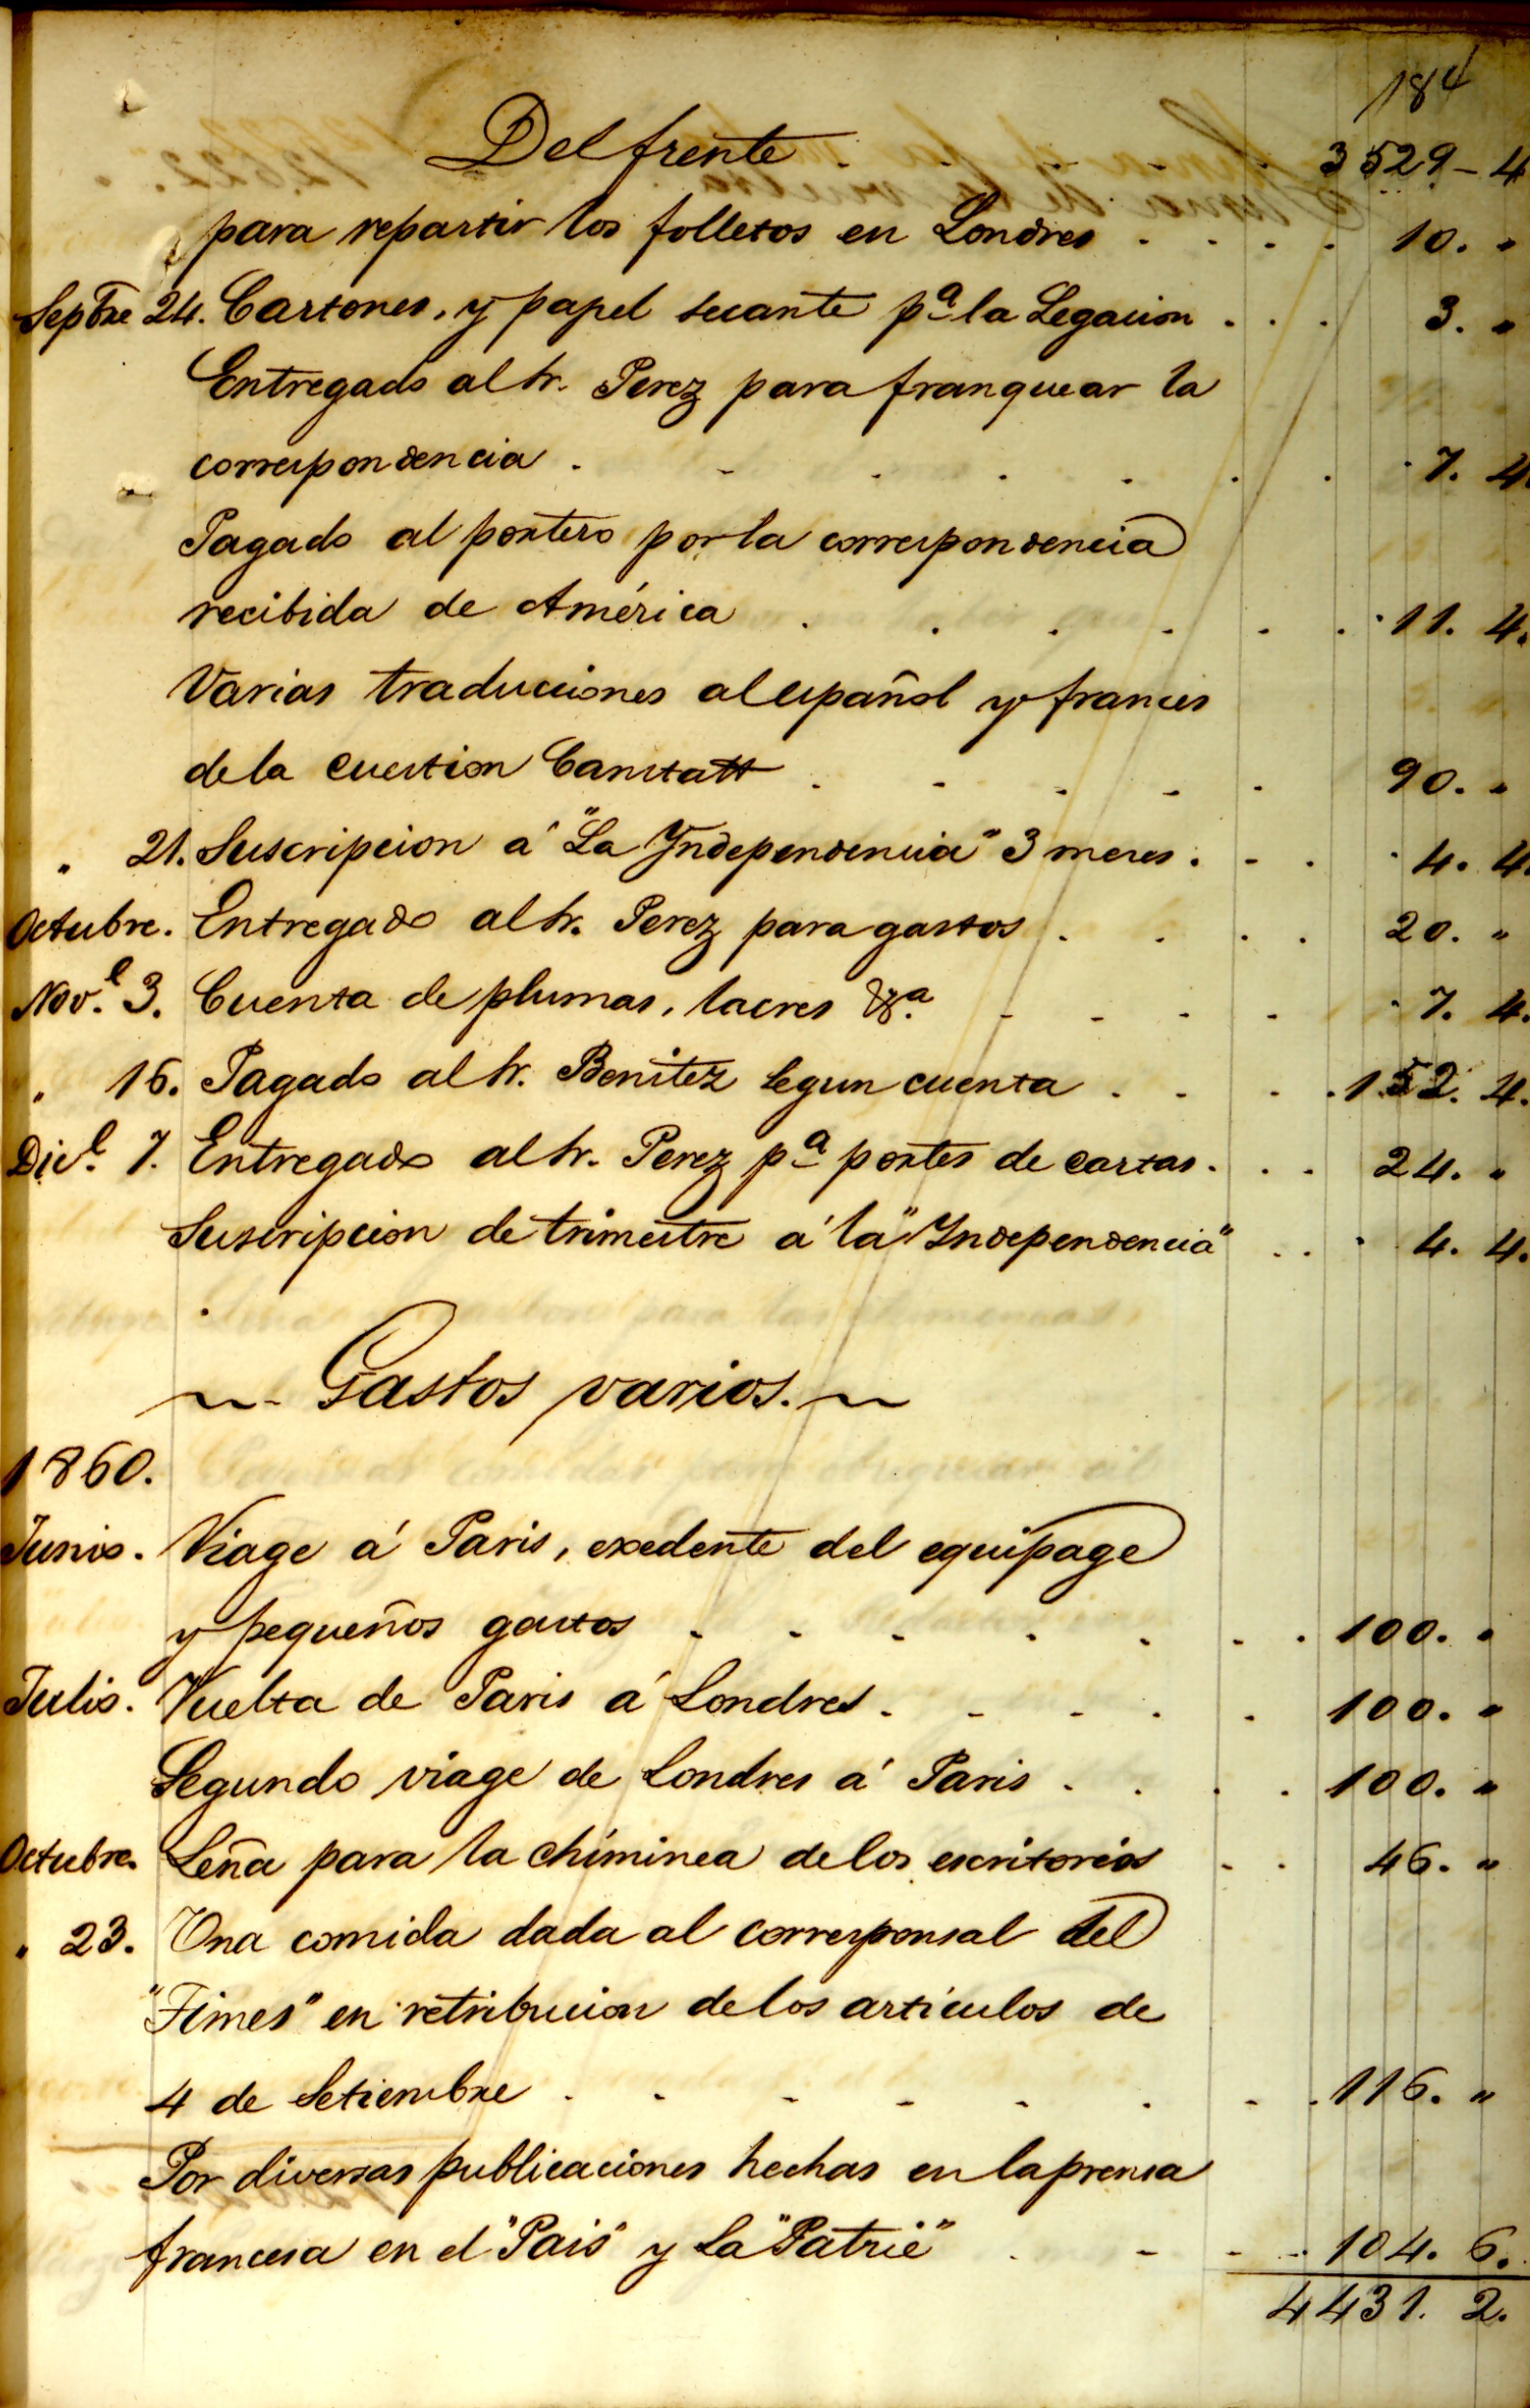 184
Del frente 3529-4
para repartir los folletos en Londres . . . . 10. "
Septre 24. Cartones, y papel secante pª la Legacion . . . 3. "
Entregado al Sr. Perez para franquear la
correspondencia . - . . . . . 7. 4.
Pagado al portero por la correspondencia
recibida de América . . . . . . 11. 4.
Varias traducciones al español y frances
de la cuestion Canstatt . - . - . 90. "
" 21. Suscripcion á "La Independencia" 3 meses . - . 4. 4.
Octubre. Entregado al Sr. Perez para gastos . . . . 20. "
Nov.e 3. Cuenta de plumas, lacres &ª. - - - - 7. 4.
" 16. Pagado al Sr. Benitez segun cuenta . - - . 152. 4.
Dic.e 7. Entregado al Sr. Perez pª portes de cartas . . - 24. "
Suscripcion de trimestre á la "Independencia" . . . 4. 4.
~- Gastos varios. ~
1860.
Junio. Viage á Paris, exedente del equipage
y pequeños gastos . - - . . - . 100. "
Julio. Vuelta de Paris á Londres . - - . - 100. "
Segundo viage de Londres á Paris . . . . 100. "
Octubre. Leña para la chiminea de los escritorios - . 46. "
" 23. Una comida dada al corresponsal del
"Times" en retribucion de los artículos de
4 de Setiembre . - - - - . - . 116. "
Por diversas publicaciones hechas en la prensa
francesa en el "Pais" y La "Patrie" . - - - 104. 6.
4431. 2.